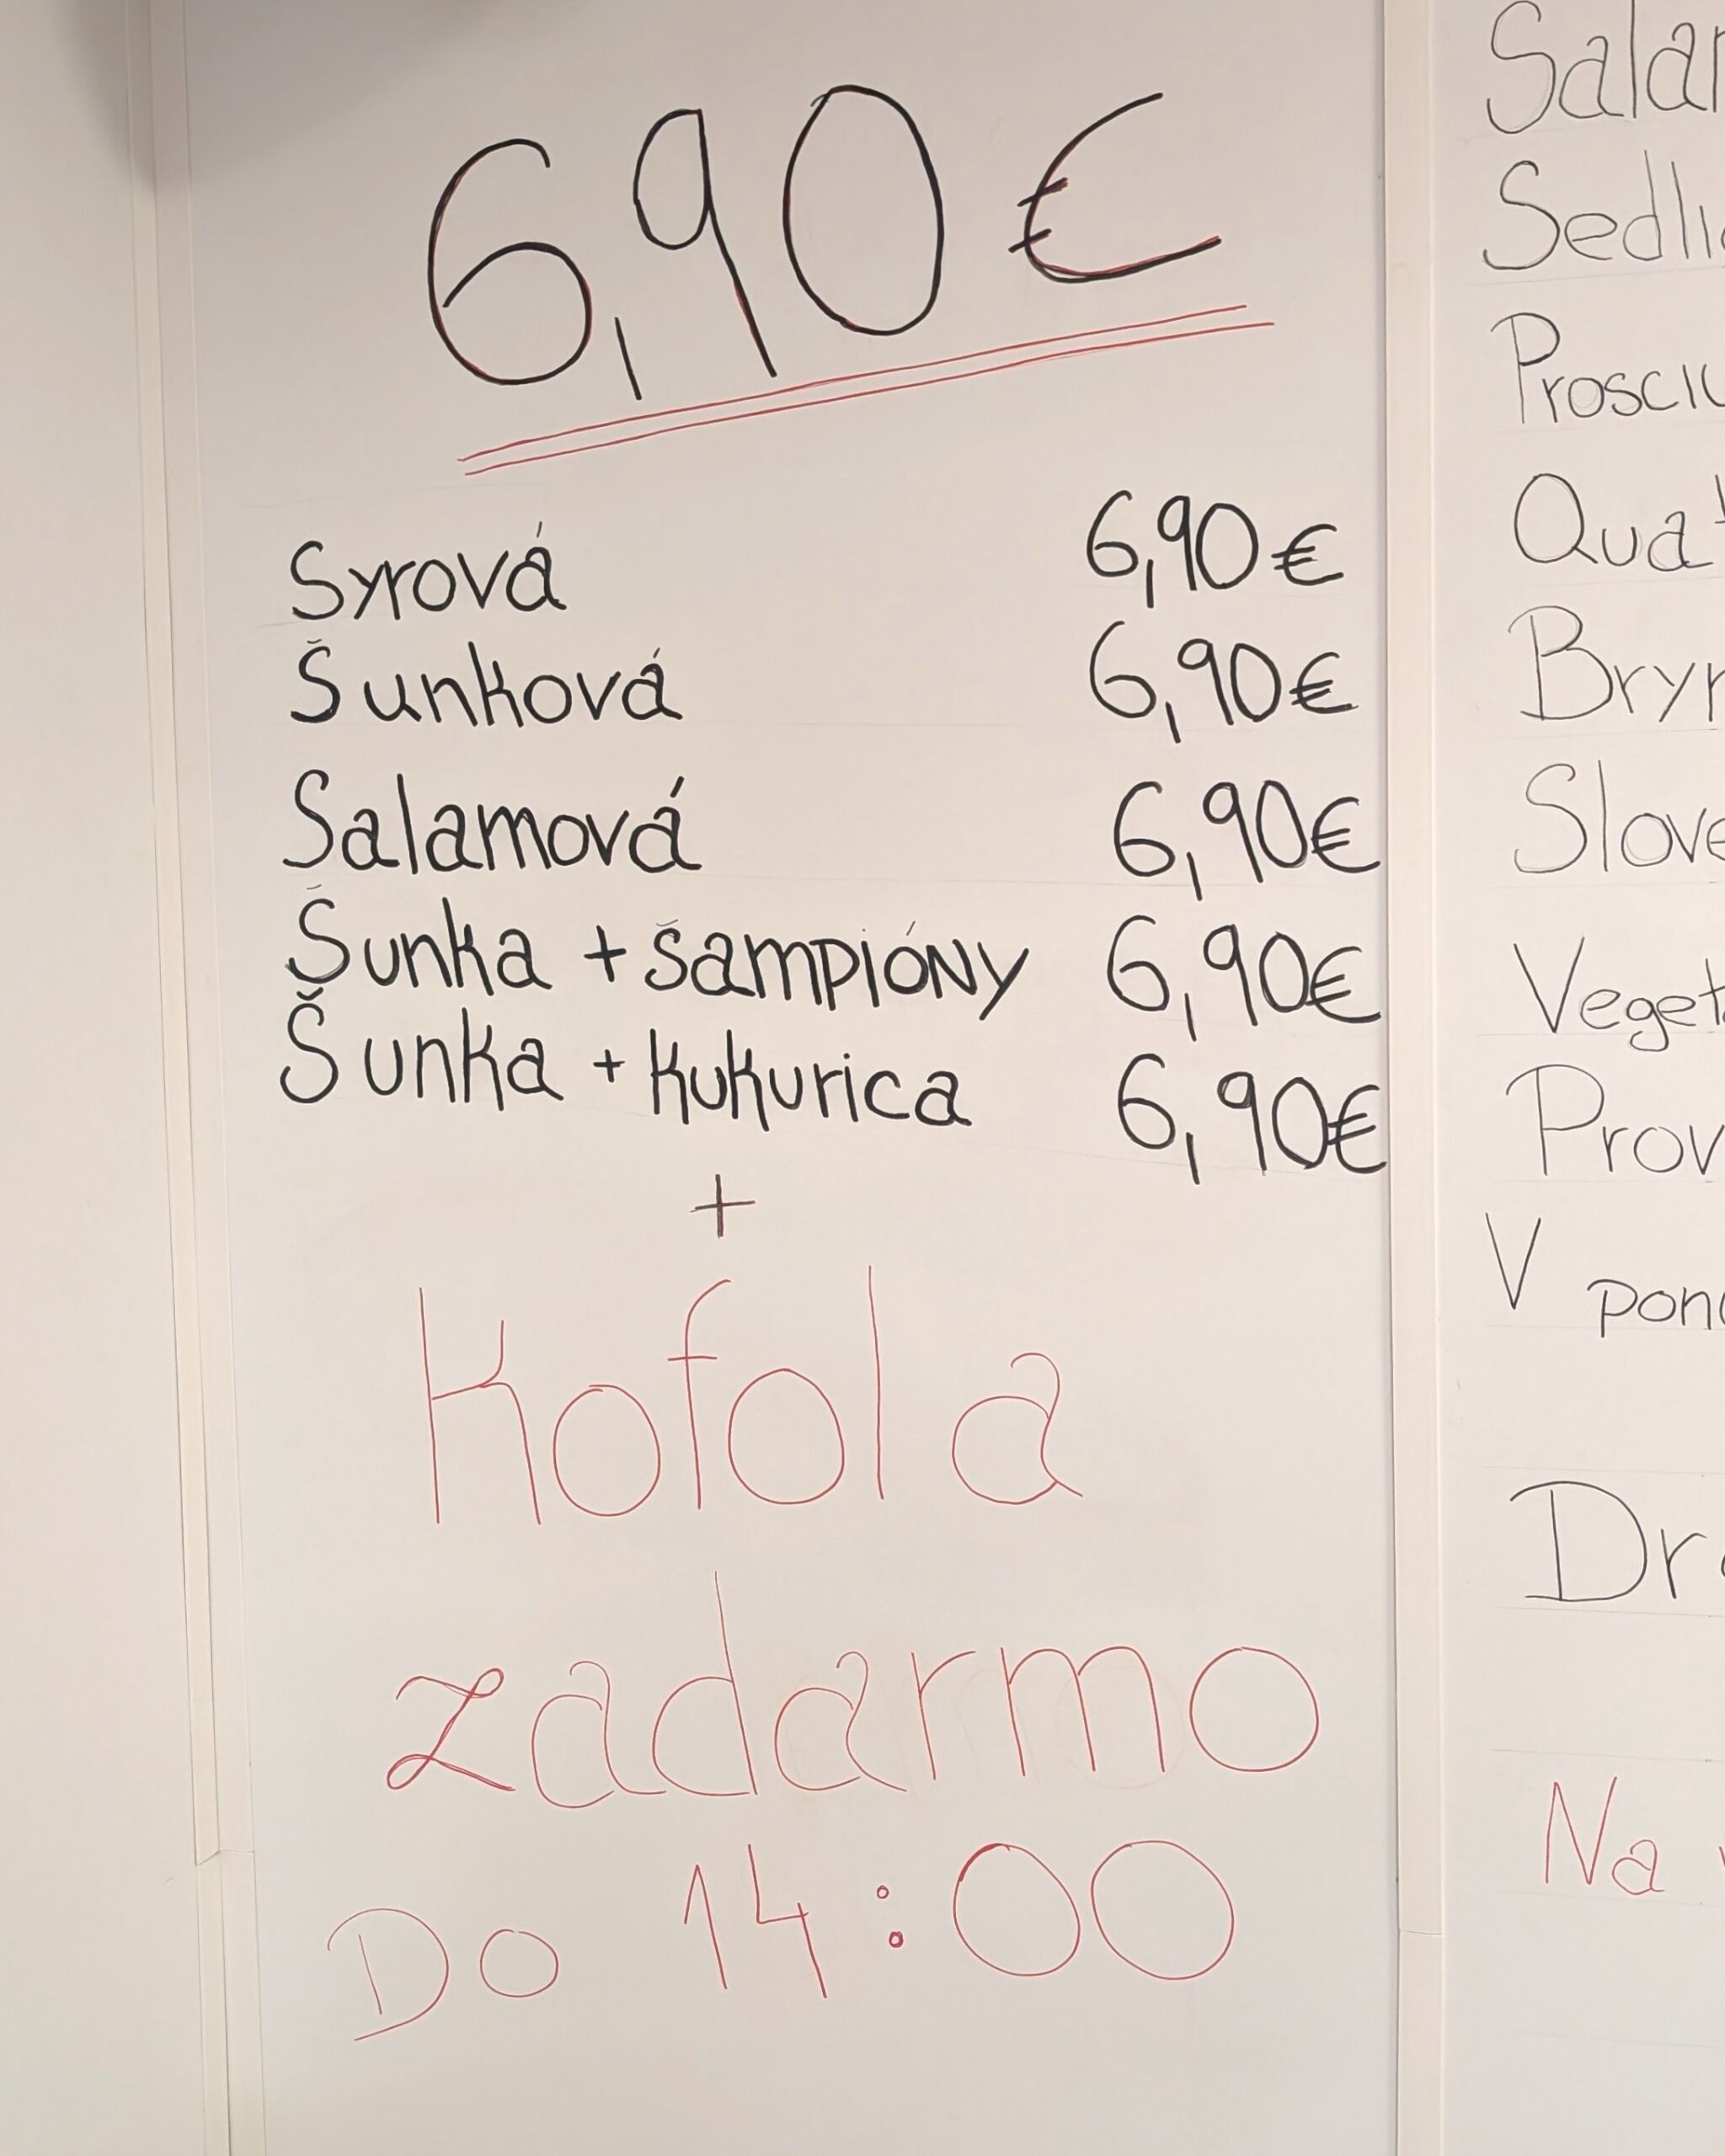 6,90 €
Syrová 6,90 €
Šunková 6,90 €
Salamová 6,90 €
Šunka + šampióny 6,90 €
Šunka + kukurica 6,90 €
+
Kofola
zadarmo
Do 14:00
Sedli
Prosciu
Qua
Bryn
Slove
Veget
Prov
V pon
Dr
Na